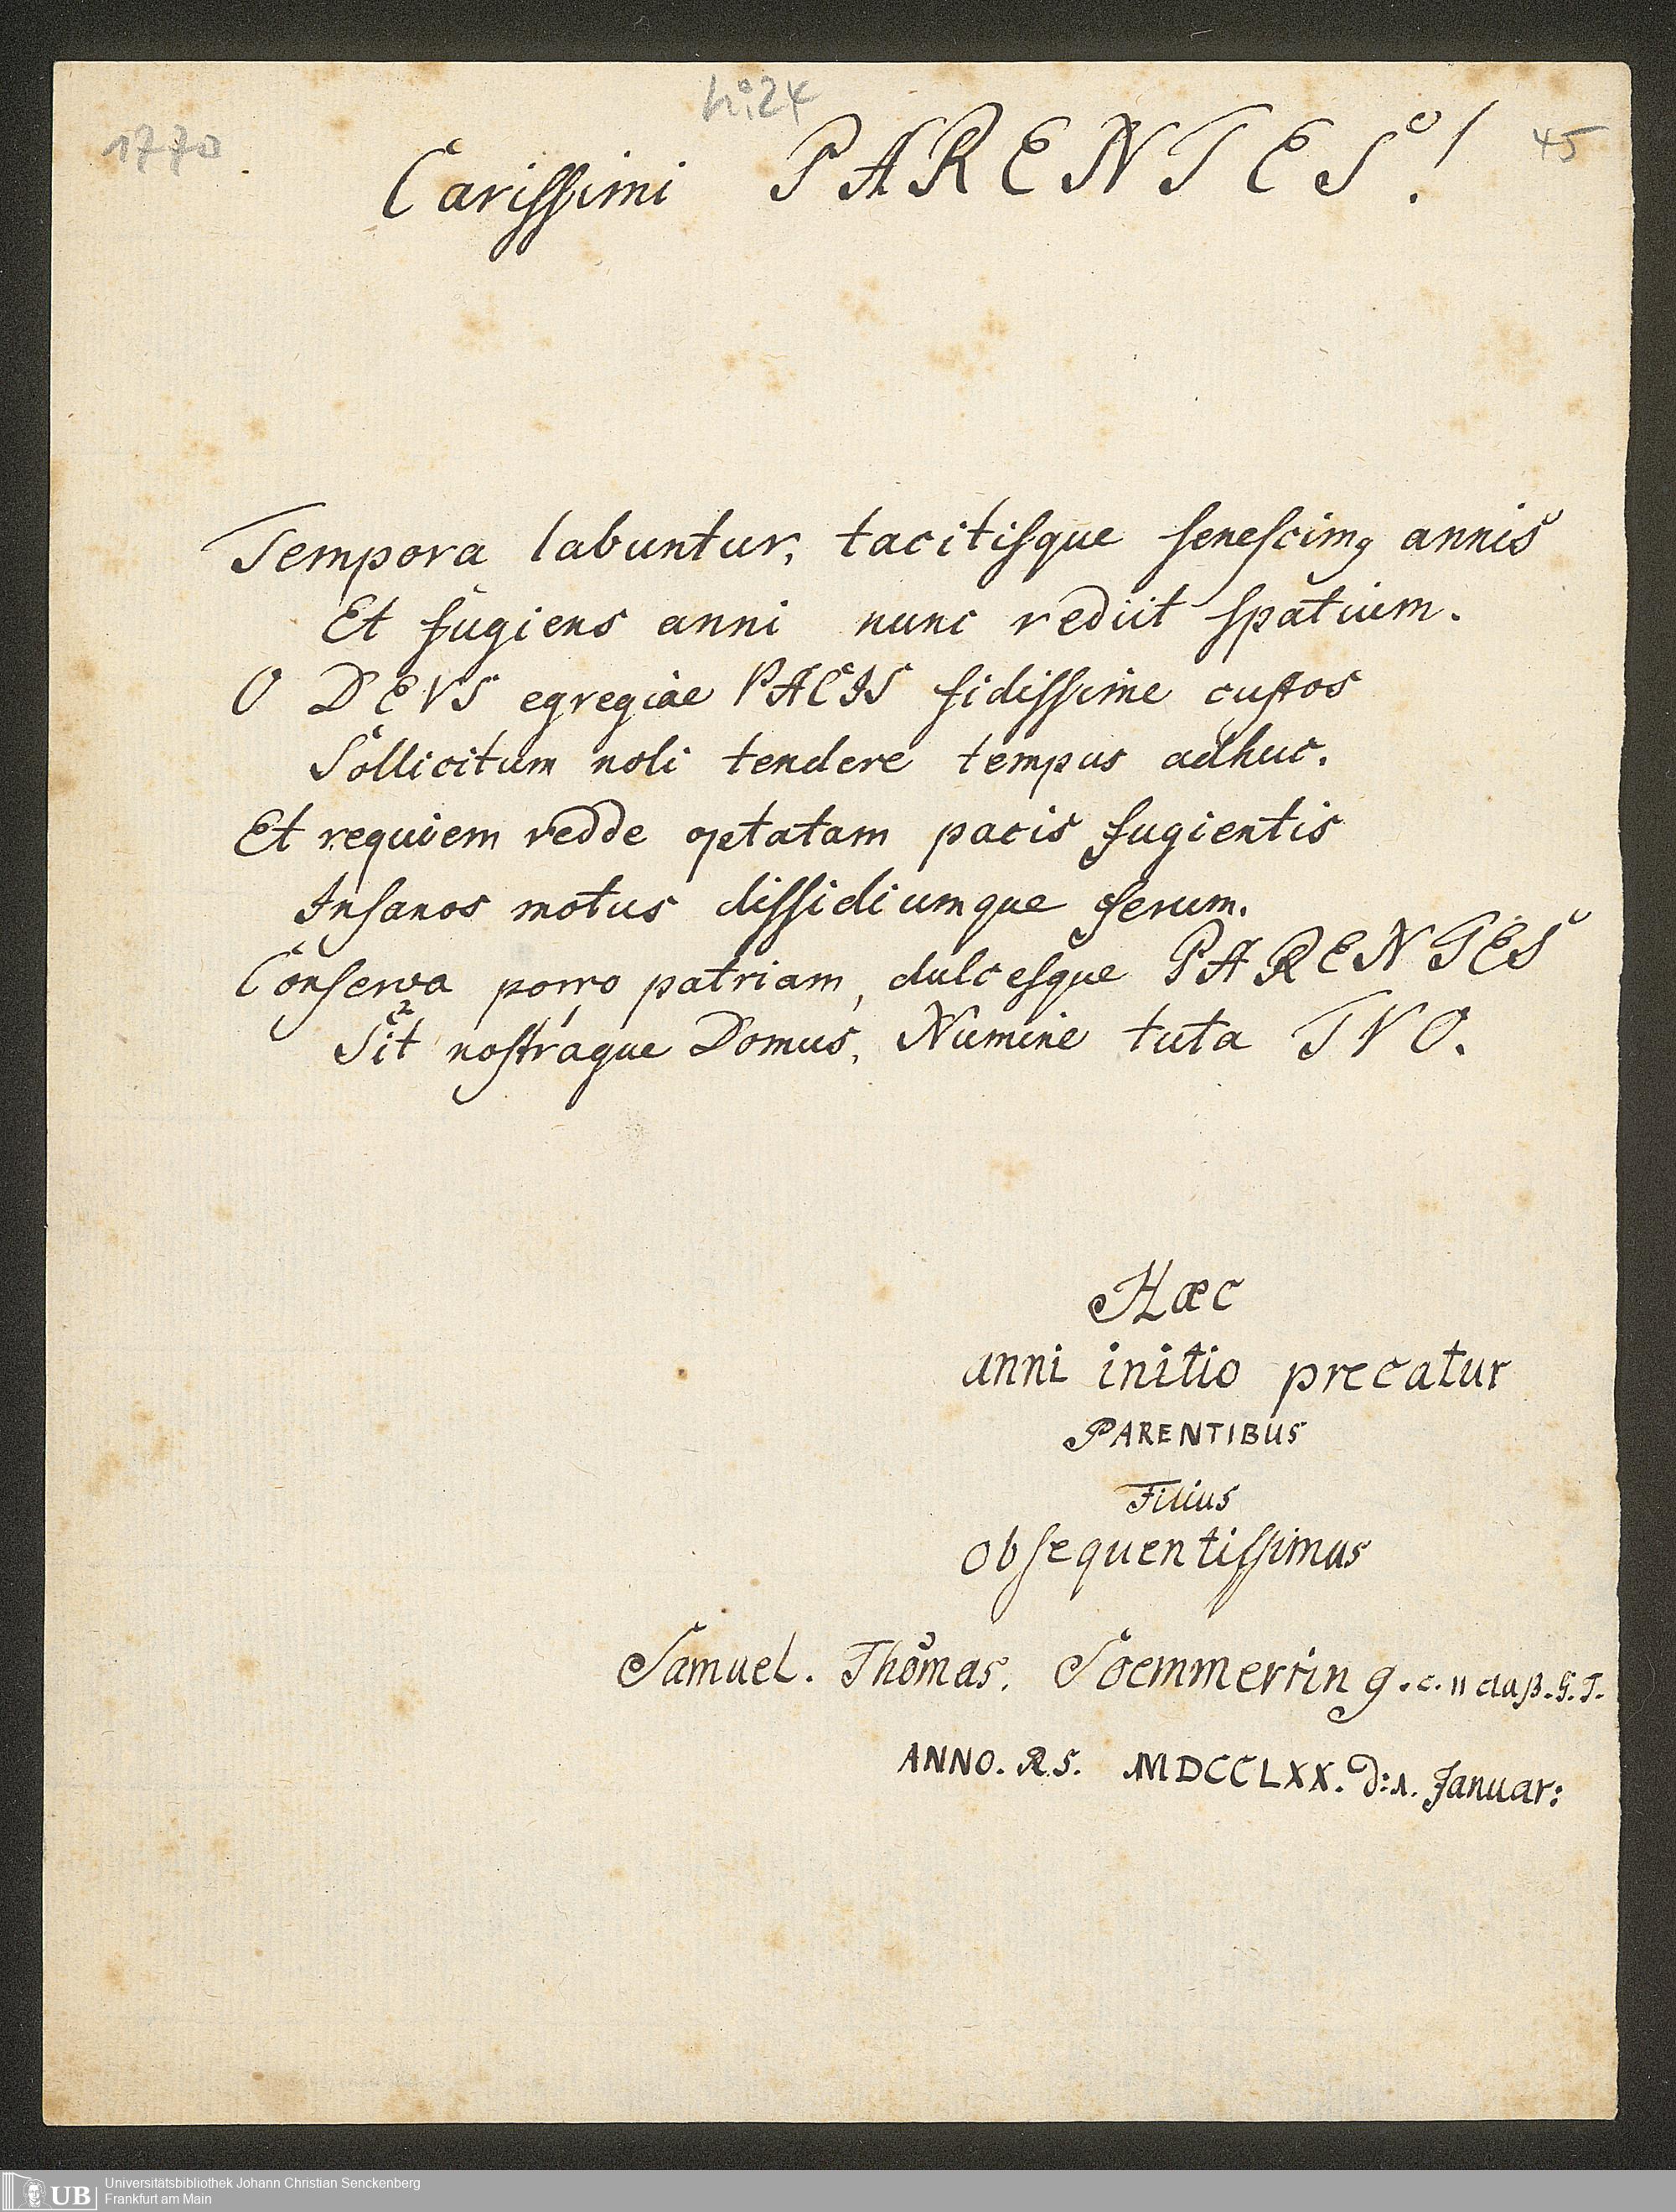 1770
No 24
45
Carissimi PARENTES!
Tempora labuntur, tacitisque senescimꝯ annis
Et fugiens anni nunc rediit spatium.
O DEVS egregiae PACIS fidissime custos
Sollicitum noli tendere tempus adhuc.
Et requiem redde optatam pacis fugientis
Insanos motus dissidiumque ferum.
Conserva porro patriam, dulcesque PARENTES
Sit nostraque Domus, Numine tuta TVO.
Hæc
anni initio precatur
PARENTIBUS
Filius
obsequentissimus
Samuel. Thomas. Soemmerring. c. II claß. G. T.
ANNO. R.S. MDCCLXX. d:1. Januar:
UB
Universitätsbibliothek Johann Christian Senckenberg
Frankfurt am Main